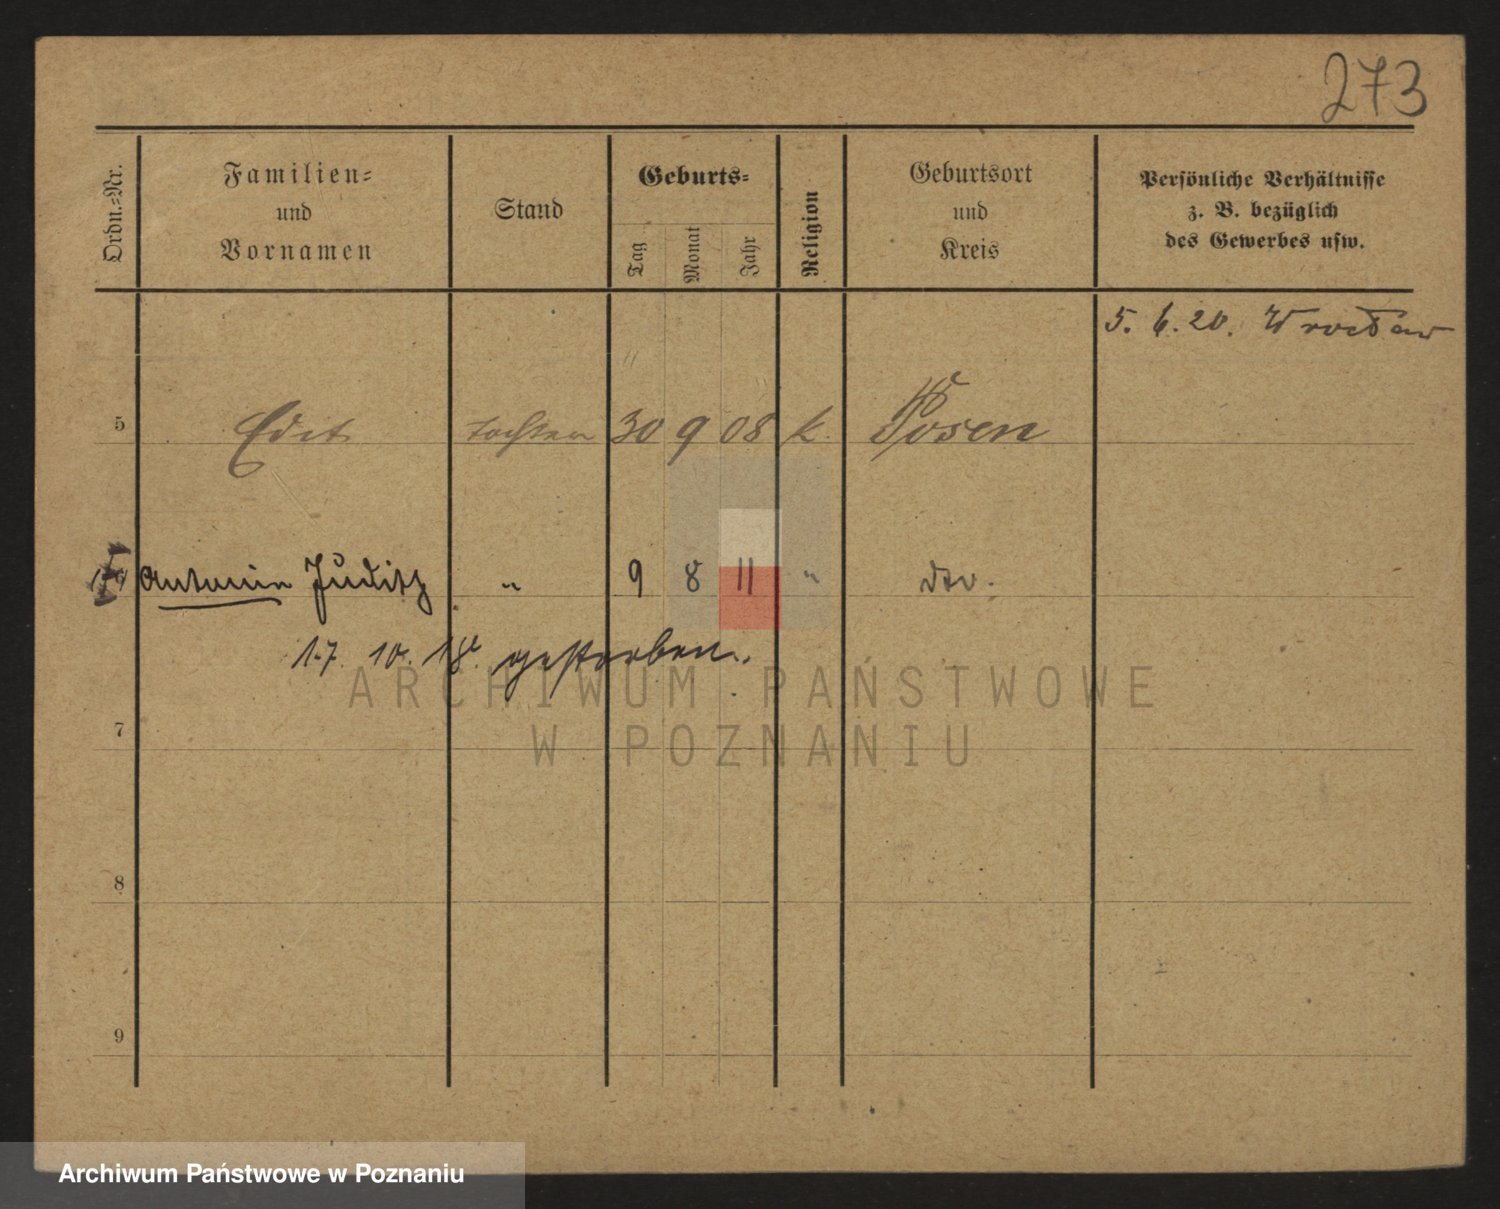 273
Ordn.=Nr.
Familien=
und
Vornamen
Stand
Geburts=
Tag
Monat
Jahr
Religion
Geburtsort
und
Kreis
Persönliche Verhältnisse
z. B. bezüglich
des Gewerbes usw.
5. 6. 20. Wrocław
5 Edit Tochter 30 9 08 k. Posen
Antonie Judith " 9 8 11 " dto.
17. 10. 18. gestorben.
ARCHIWUM PAŃSTWOWE
W POZNANIU
7
8
9
Archiwum Państwowe w Poznaniu